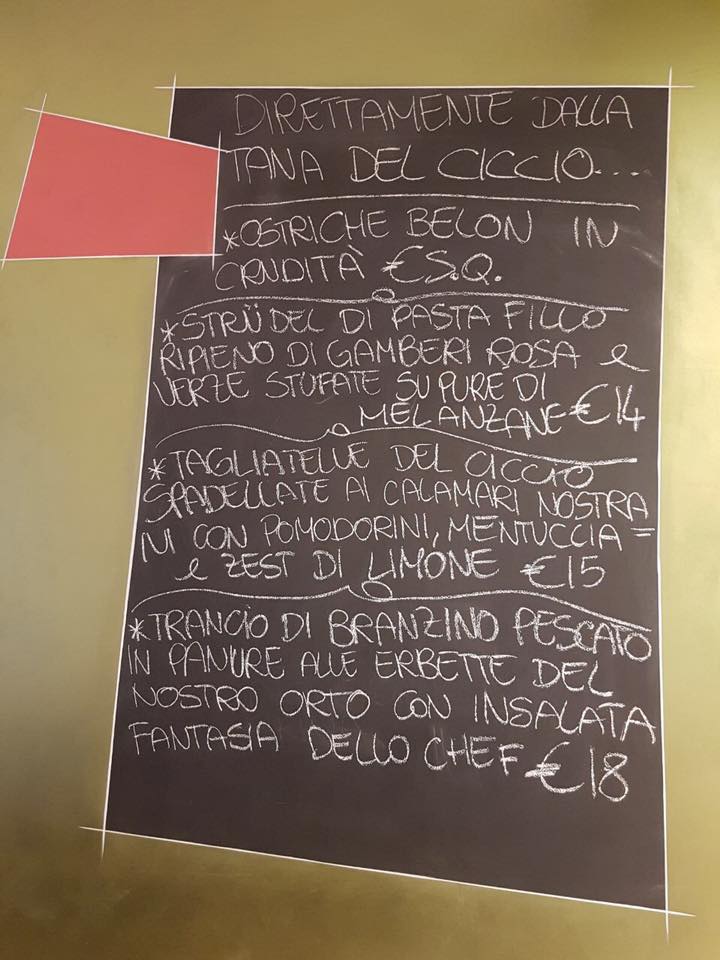 DIRETTAMENTE DALLA
TANA DEL CICCIO....
*OSTRICHE BELON IN
CRUDITÀ €S.Q.
*STRÜDEL DI PASTA FILLO
RIPIENO DI GAMBERI ROSA e
VERZE STUFATE SU PURE DI
MELANZANE €14
*TAGLIATELLE DEL CICCIO
SPADELLATE AI CALAMARI NOSTRA=
NI CON POMODORINI, MENTUCCIA
e ZEST DI LIMONE €15
*TRANCIO DI BRANZINO PESCATO
IN PANURE ALLE ERBETTE DEL
NOSTRO ORTO CON INSALATA
FANTASIA DELLO CHEF €18